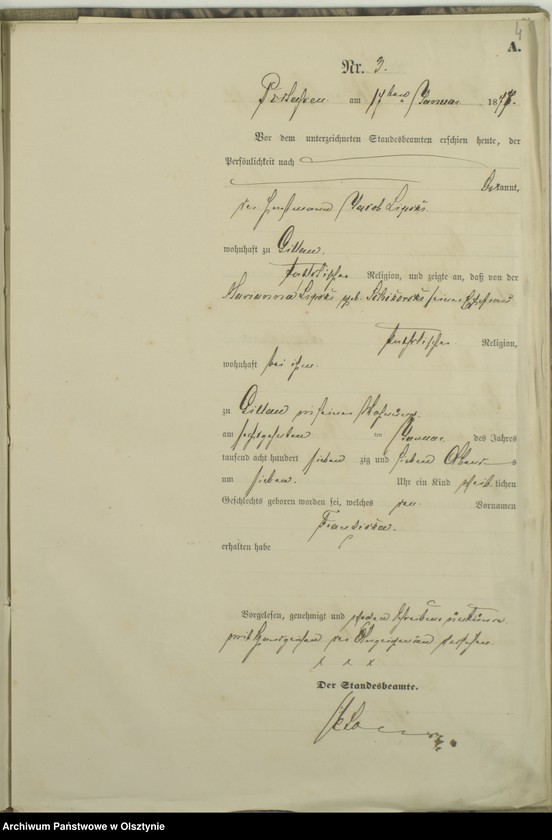 4
A.
Nr. 3.
am 17ten Januar 1877.
Vor dem unterzeichneten Standesbeamten erschien heute, der
Persönlichkeit nach
bekannt,
der Jacob Lipski
wohnhaft zu Dittau
katholischer Religion, und zeigte an, daß von der
Marianna Lipski geb. seiner Ehefrau
katholischer Religion,
wohnhaft bei ihm
zu Dittau in seiner Wohnung
am sechszehnten ten Januar des Jahres
tausend acht hundert sieben zig und sieben Abends
um sieben Uhr ein Kind weiblichen
Geschlechts geboren worden sei, welches den Vornamen
Franziska.
erhalten habe
Vorgelesen, genehmigt und wegen Schreibens
mit Handzeichen des versehen.
x x x
Der Standesbeamte.
Archiwum Państwowe w Olsztynie